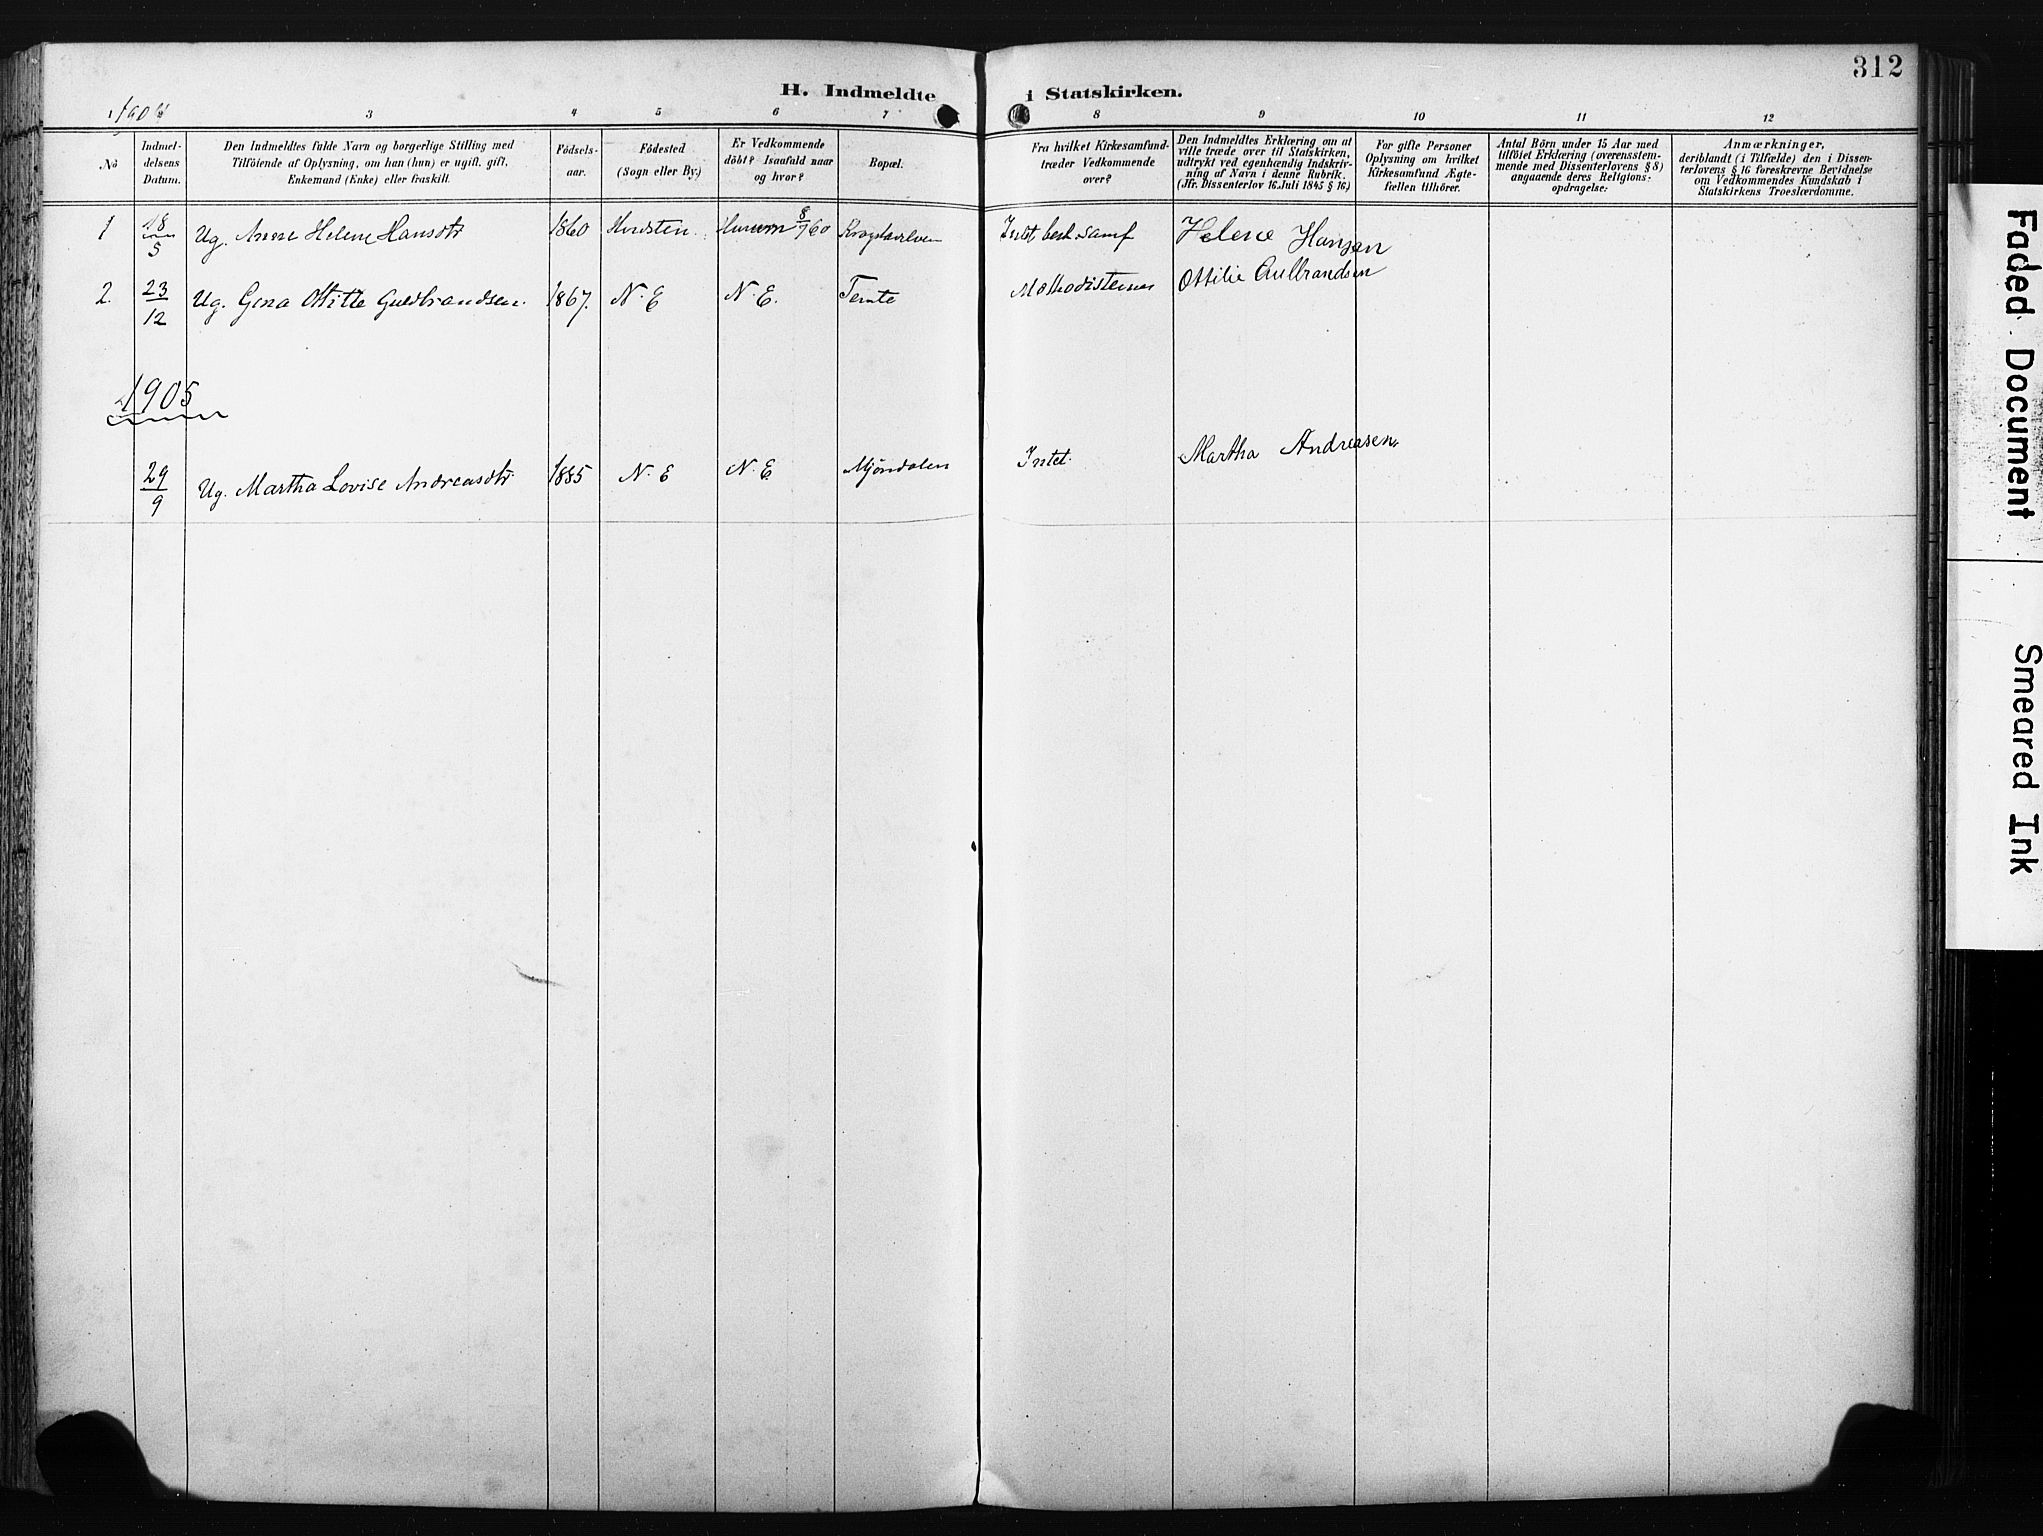 312
H. Indmeldte i Statskirken.
1 3 4 5 6 7 8 9 10 11 12
No
Indmeldelsens Datum.
Den Indmeldtes fulde Navn og borgerlige Stilling med
Tilföiende af Oplysning, om han (hun) er ugift, gift,
Enkemand (Enke) eller fraskilt.
Födsels-
aar.
Födested
(Sogn eller By.)
Er Vedkommende
döbt? Isaafald naar
og hvor?
Bopæl.
Fra hvilket Kirkesamfund
træder Vedkommende
over?
Den Indmeldtes Erklæring om at
ville træde over til Statskirken,
udtrykt ved egenhændig Indskriv-
ning af Navn i denne Rubrik.
(Jfr. Dissenterlov 16. Juli 1845 § 16)
For gifte Personer
Oplysning om hvilket
Kirkesamfund Ægte-
fællen tilhörer.
Antal Börn under 15 Aar med
tilföiet Erklæring (overensstem-
mende med Dissenterlovens § 8)
angaaende deres Religions-
opdragelse:
Anmærkninger,
deriblandt (i Tilfælde) den i Dissen-
terlovens § 16 foreskrevne Bevidnelse
om Vedkommendes Kundskab i
Statskirkens Troeslærdomme.
1 18/5 Ug. Anne Helene Hansdtr 1860 Hurum 8/7 60 Intet best. samf Helene Hansen
2. 23/12 Ug. Gina Otilie Guldbrandsen. 1867. N. E N. E. Temte Methodisterne Ottilie Gulbrandsen
1905
29/9 Ug. Martha Lovise Andreasdtr. 1885 N. E N. E Mjøndalen Intet. Martha Andreasen.
Faded Document
Smeared Ink